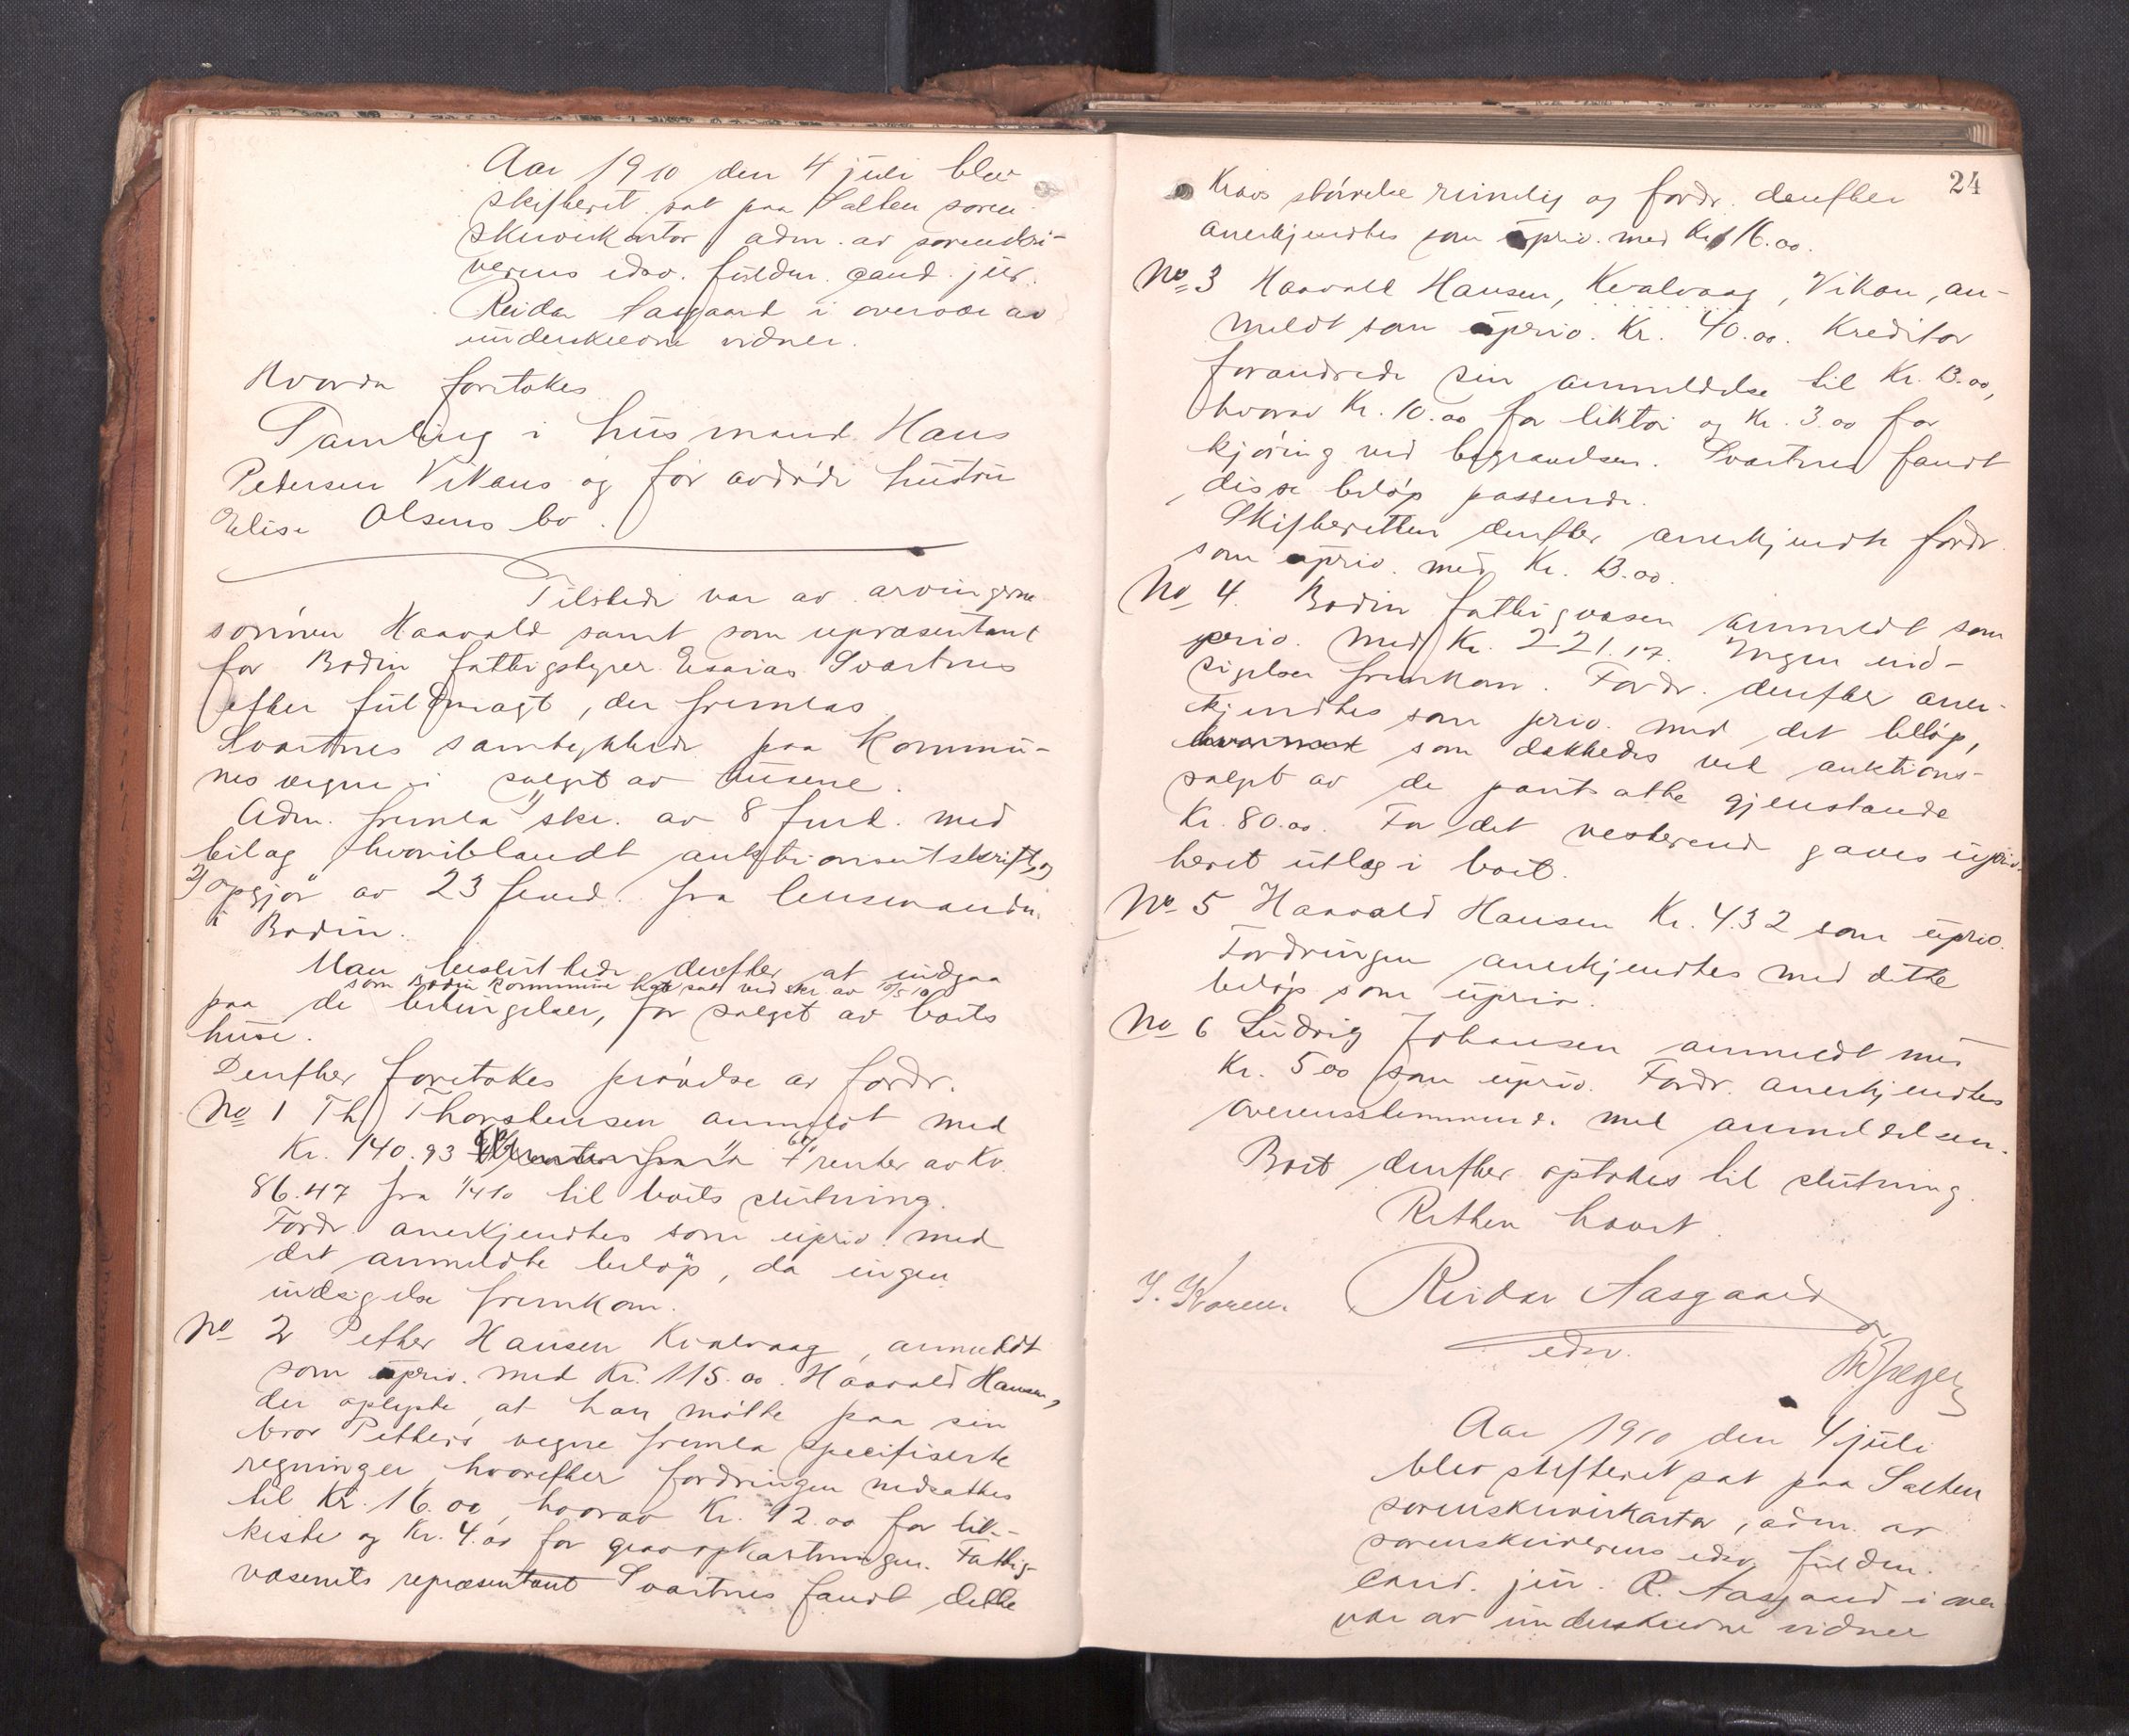 Aar 1910 den 4 juli blev
skifteret sat paa Salten soren-
skriverkontor adm. av sorenskri-
verens edsv. fuldm. cand. jur.
Reidar Aasgaard i overvær av
underskrevne vidner.
Hvorda foretokes
Samling i husmand Hans
Pedersen Vikans og før avdøde hustru
Elise Olsens bo.
Tilstede var av arvingerne
sønnen Haavald samt som representant
for Bodin fattigstyre Esaias Svartnes
efter fuldmagt, der fremlas.
Svartnes samtykkede paa kommu-
nes vegne i salget av husene.
Adm. fremla 1) skr. av 8 juni d. med
bilag hvoriblandt auktionsutskrift, og
2) opgjør av 23 juni d. fra lensmanden
i Bodin.
Man besluttede derefter at indgaa
som Bodin kommune har sat ved skr av 10/5 10
paa de betingelser, for salget av boets
huse.
Derefter foretokes prøvelse av fordr.
No 1 Th Thorstensen anmeldt med
Kr. 140.93 renter av Kr.
86.47 fra 1/4 10 til boets slutning.
Fordr. anerkjendtes som upriv. med
det anmeldte beløp, da ingen
indsigelse fremkom.
No 2 Petter Hansen Kvalvaag, anmeldt
som upriv. med Kr. 115.00. Haavald Hansen,
der oplyste, at han møtte paa sin
bror Petters vegne fremla specifiserte
regninger, hvorefter fordringen nedsattes
til Kr. 16.00, hvorav Kr. 12.00 for lik-
kiste og Kr. 4.00 for gravopkastningen. Fattig-
væsenets repræsentant Svartnes fandt dette
24
Kravs størrelse rimelig og fordr. derefter
anerkjendtes som upriv. med Kr. 16.00.
No 3 Haavald Hansen, Kvalvaag, Vikan, an-
meldt som upriv. Kr. 40.00. Kreditor
forandrede sin anmeldelse til Kr. 13.00,
hvorav Kr. 10.00 for liktøi og Kr. 3.00 for
kjøring ved begravelsen. Svartnes fandt
disse beløp passende.
Skifteretten derefter anerkjendte fordr.
som upriv. med Kr. 13.00.
No 4. Bodin fattigvæsen anmeldt som
priv. med Kr. 221.17. Ingen ind-
sigelser fremkom. Fordr. derefter aner-
kjendtes som priv. med det beløp,
som dækkedes ved auktions-
salget av de pantsatte gjenstande
Kr. 80.00. For det resterende gaves upriv-
teret utlæg i boet.
No 5 Haavald Hansen Kr. 4.32 som upriv.
Fordringen anerkjendtes med dette
beløp som upriv.
No 6 Ludvig Johansen anmeldt med
Kr. 5 00 som upriv. Fordr. anerkjendtes
overensstemmende med anmeldelsen.
Boet derefter optokes til slutning.
Retten hævet.
Reidar Aasgaard
edsv.
Aar 1910 den 4 juli
blev skifteret sat paa Salten
sorenskriverkontor, adm. av
sorenskriverens edsv. fuldm.
cand. jur. R. Aasgaard i over
vær av underskrevne vidner